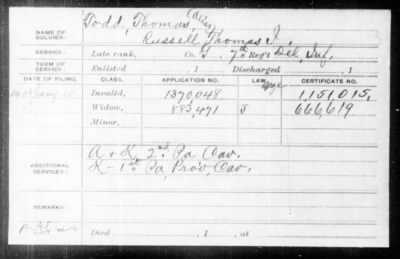 Todd, Thomas, (alias)
NAME OF SOLDIER: Russell Thomas J.
SERVICE: Late rank, Co. I. 7th Reg't Del. Inf.
TERM OF SERVICE: Enlisted , 1 Discharged , 1
DATE OF FILING. CLASS. APPLICATION NO. LAW. CERTIFICATE NO.
Invalid, 1370,048 1,151,015,
Widow, 883,471 J 666,619
Minor,
ADDITIONAL SERVICES: A + K, 2nd Pa Cav.
K - 1st Pa, Prov, Cav.
REMARKS:
Died , 1 , at